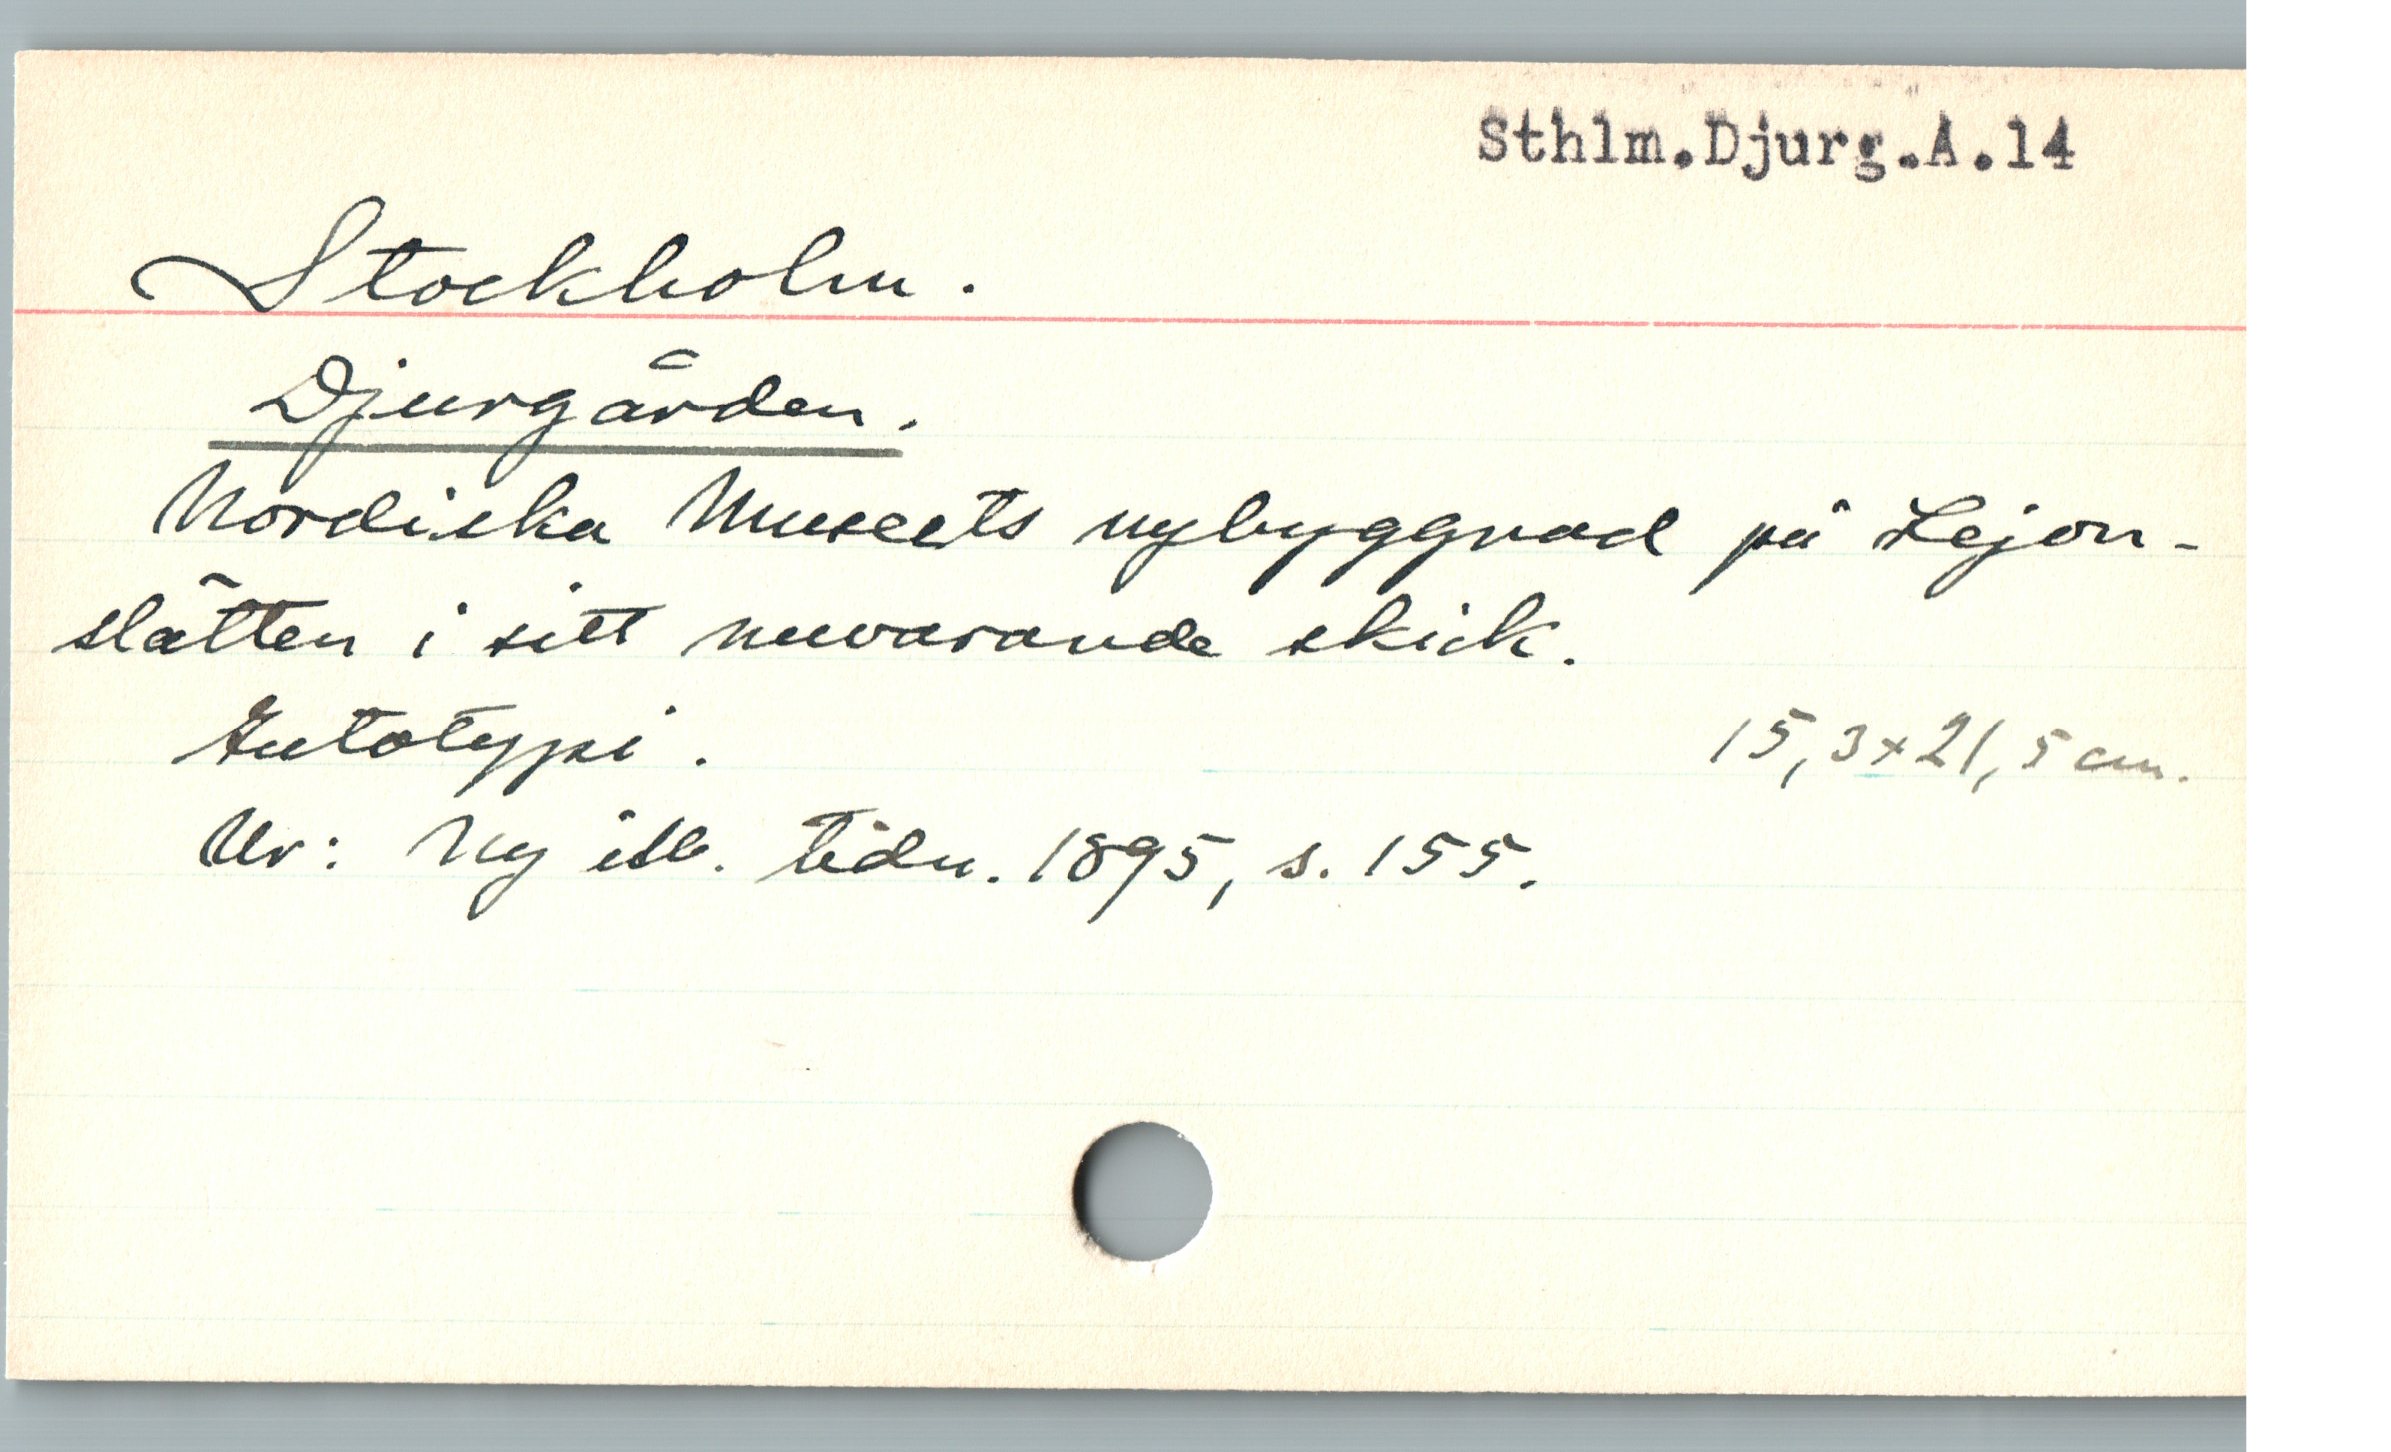 Sthlm.Djurg.A.14
Stockholm.
Djurgården.
Nordiska Museets nybyggnad på Lejon-
slätten i sitt nuvarande skick.
Autotypi. 15,3x21,5 cm.
Ur: Ny ill. tidn. 1895, s. 155.